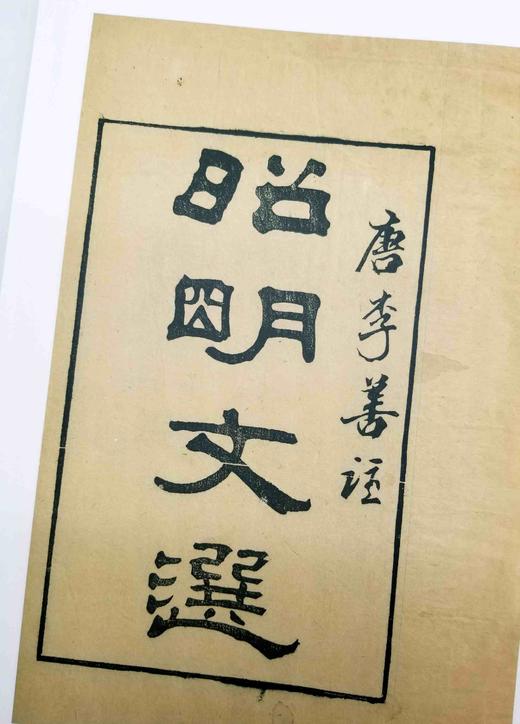 唐李善注
昭明文選